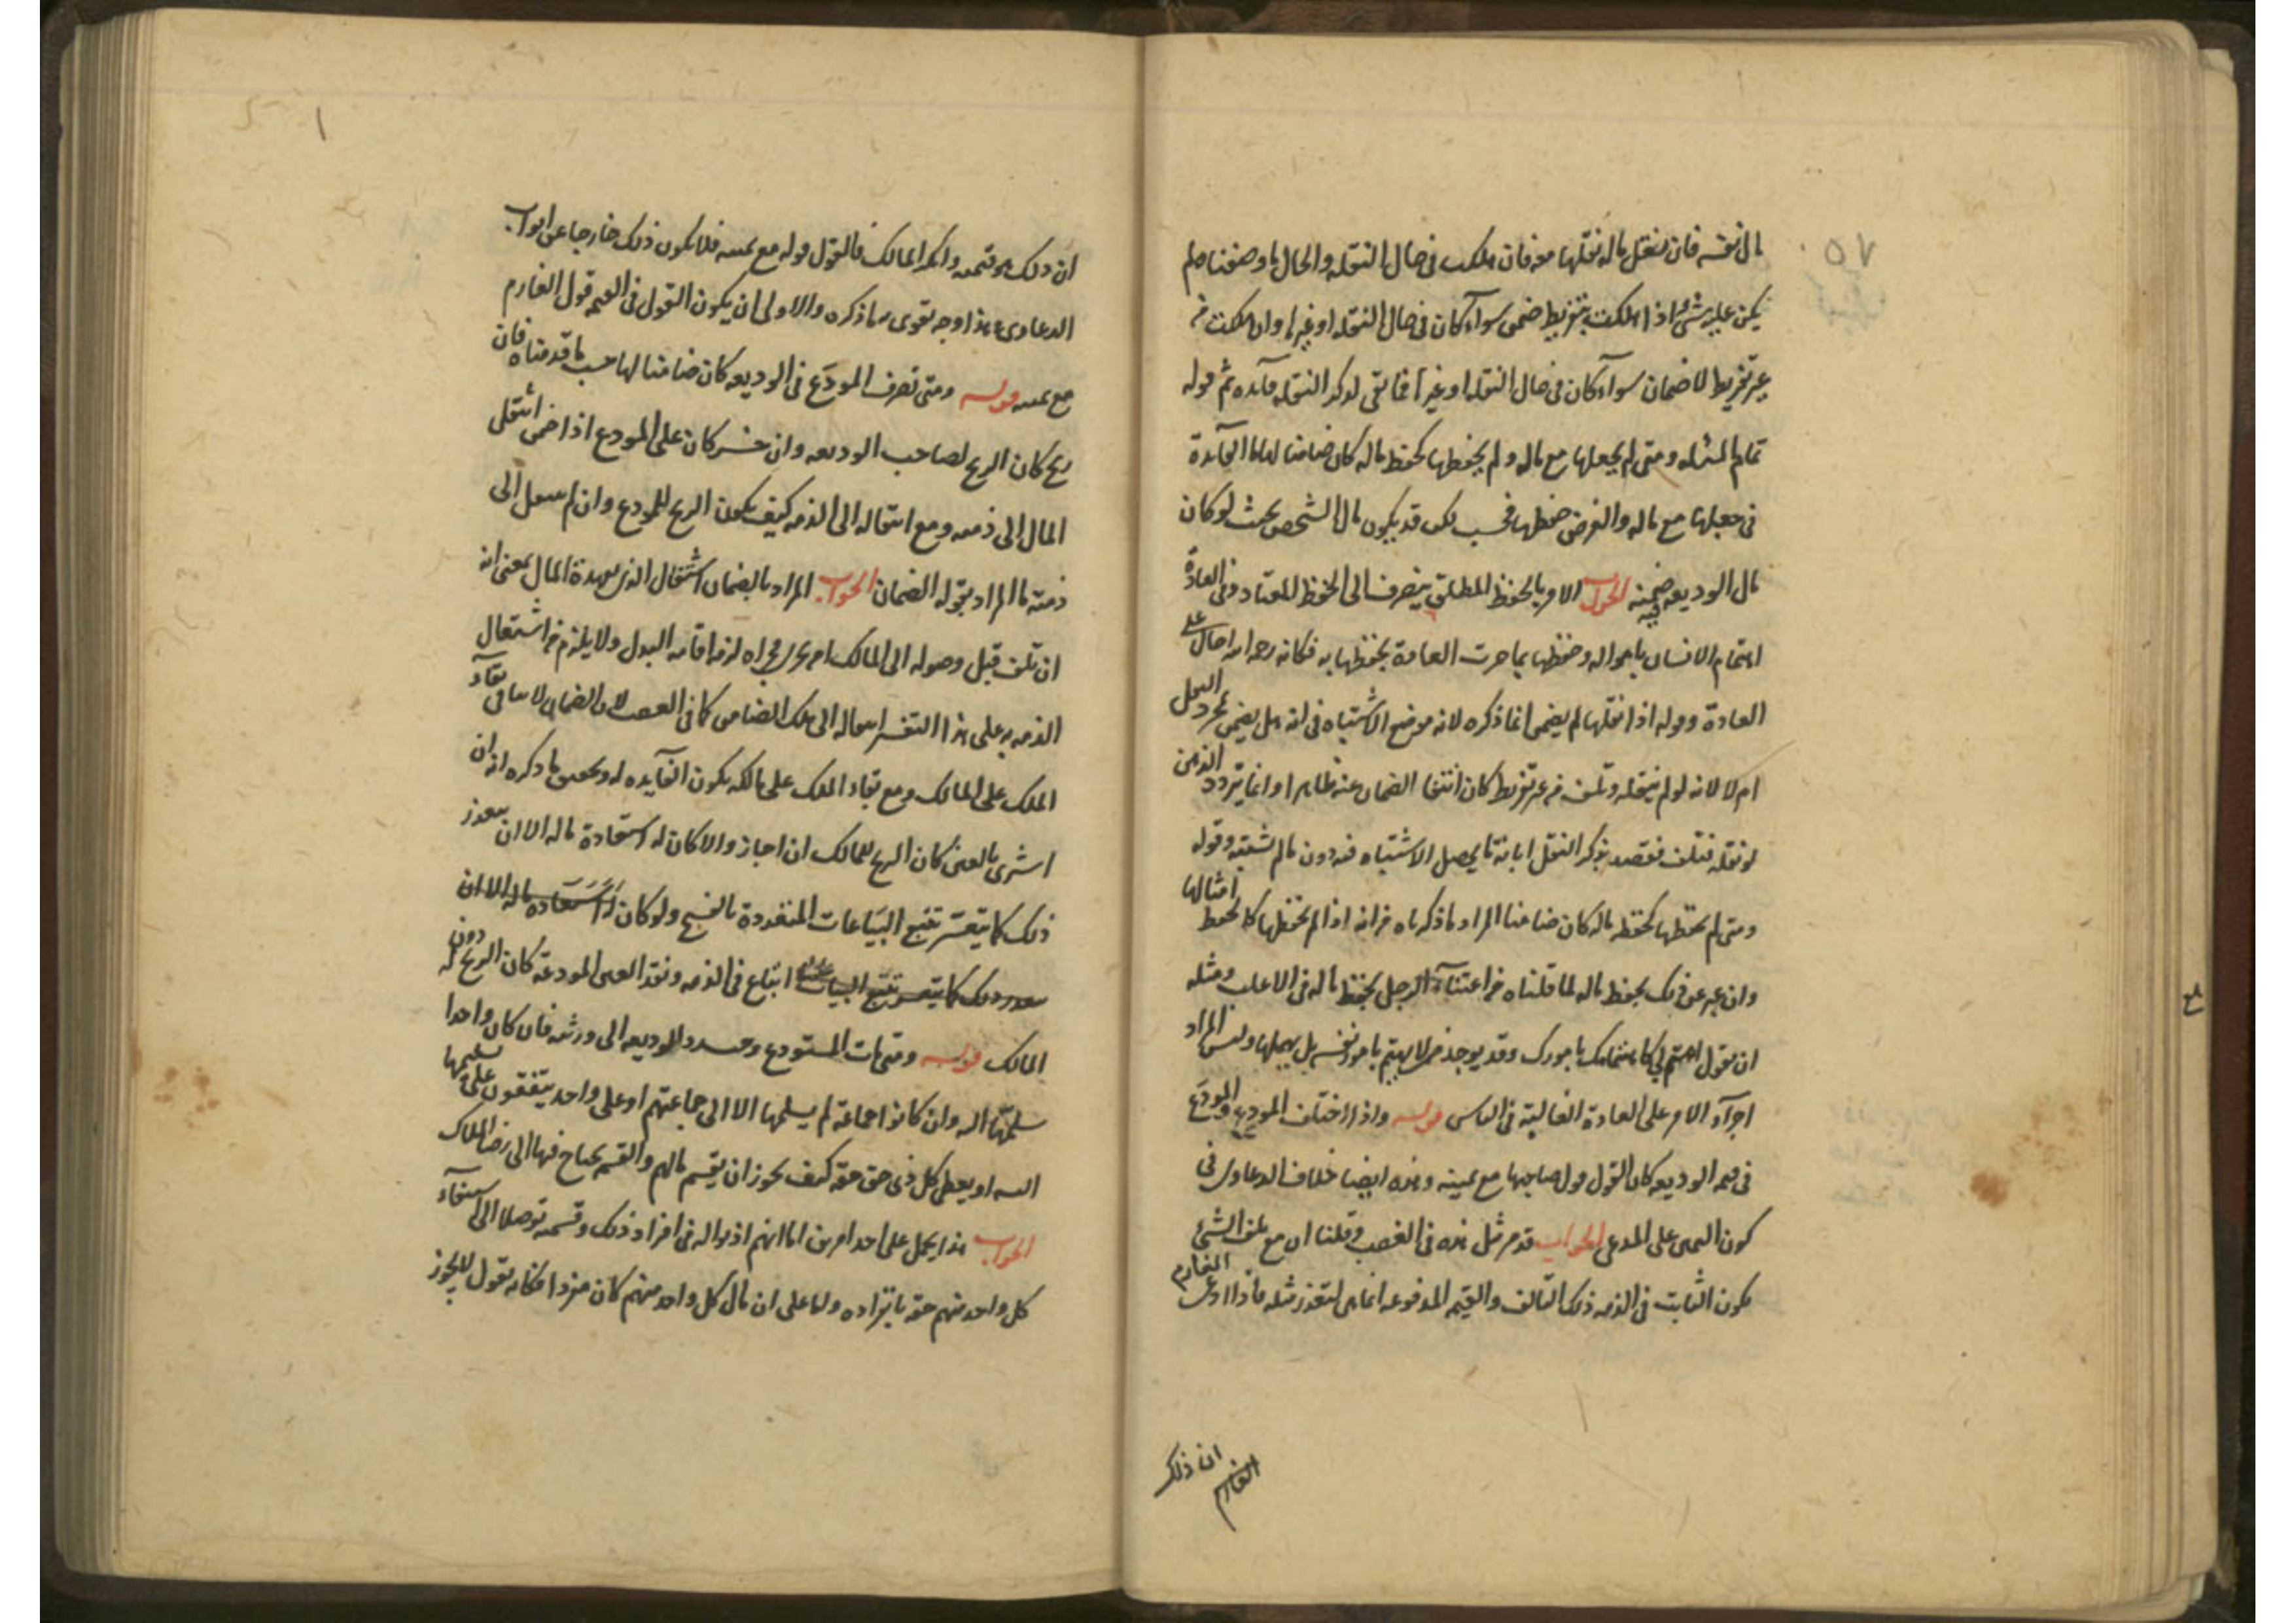 مال نفسه فان ينقل ماله نقلها معه فان هلكت فى حال النقله والحال ما وصفناه لم
يكن عليه شئ اذا هلكت بتفريط ضمن سوآء كان فى حال النقله او غيرها وان هلكت من
غير تفريط لا ضمان سوآء كان فى حال النقله او غيرها فما بقى لذكر النقله فآئده ثم قوله
تمام المسئله ومتى لم يجعلها مع ماله ولم يحفظها كحفظ ماله كان ضامنا لها ما الفآئدة
فى جعلها مع ماله والغرض حفظها فحسب لكن قد يكون مال الشخص بحيث لو كان
مال الوديعه ضمنه الجواب الامر بالحفظ المطلق ينصرف الى الحفظ المعتاد وفى العادة
اهتمام الانسان بامواله وحفظها بما جرت العادة بحفظها به فكانه رحمه الله احال على
العادة وقوله اذا نقلها لم يضمن انما ذكره لانه موضع الاشتباه فى انه هل يضمن بمجرد النقل
ام لا لانه لو لم ينقله وتلف من غير تفريط كان انتفا الضمان عنه ظاهرا وانما يتردد الذهن
لو نقله فتلف فقصد بذكر النقل ابانة ما يحصل الاشتباه فيه دون ما لم يشتبه وقوله
ومتى لم يحفظها كحفظ ماله كان ضامنا المراد ما ذكرناه من انه اذا لم يحفظها كما يحفظ امثالها
وان عبر عن ذلك بحفظ ماله لما قلناه من اعتنآء الرجل بحفظ ماله فى الاغلب ومثله
ان يقول اهتم لى كاهتمامك بامورك وقد يوجد من لا يهتم بامور نفسه بل يهملها وليس المراد
اجرآء الامر على العادة الغالبة فى الناس قوله واذا اختلف المودع والمودَع
فى قيمه الوديعه كان القول قول صاحبها مع يمينه وهذه ايضا خلاف الدعاوى فى
كون اليمين على المدعى الجواب قد مر مثل هذه فى الغصب وقلنا ان مع تلف الشئ
يكون الثابت فى الذمه ذلك التالف والقيمه المدفوعه انما هى لتعذر مثله فاذا ادعى الغارم
الغارم ان ذلك
ان ذلك هو قيمته وانكر المالك فالقول قوله مع يمينه فلا يكون ذلك خارجا عن ابواب
الدعاوى هذا وجه يقوى ما ذكره والاولى ان يكون القول فى القيمه قول الغارم
مع يمينه قوله ومتى تصرف المودَع فى الوديعه كان ضامنا لها حسب ما قدمناه فان
ربح كان الربح لصاحب الوديعه وان خسر كان على المودع اذا ضمن انتقل
المال الى ذمته ومع انتقاله الى الذمه كيف يكون الربح للمودع وان لم ينتقل الى
ذمته ما المراد بقوله الضمان الجواب المراد بالضمان اشتغال الذمه بعهدة المال بمعنى انه
ان تلف قبل وصوله الى المالك او من يجرى مجراه لزمه اقامه البدل ولا يلزم من اشتغال
الذمه به على هذا التفسير انتقاله الى ملك الضامن كما فى الغصب لان الضمان لا ينافى بقآء
الملك على المالك ومع بقاء الملك على مالكه يكون الفآيده له وتحقيق ما ذكره انه ان
اشترى بالعين كان الربح للمالك ان اجاز والا كان له استعادة ماله الا ان يتعذر
ذلك كما يتعسر تتبع البياعات المتعددة بالفسخ ولو كان
ابتاع فى الذمه ونقد العين المودعة كان الربح له دون
المالك قوله ومتى مات المستودع وجب رد الوديعه الى ورثته فان كان واحدا
سلمها اليه وان كانوا جماعة لم يسلمها الا الى جماعتهم او على واحد يتفقون على تسليمها
اليه او يعطى كل ذى حق حقه كيف يجوز ان يقسم مالهم والقسمه يحتاج فيها الى رضا الملاك
الجواب هذا يحمل على احد امرين اما انهم اذنوا له فى افراد ذلك وقسمه توصلا الى استيفآء
كل واحد منهم حقه بانفراده واما على ان مال كل واحد منهم كان منفردا فكانه يقول لا يجوز